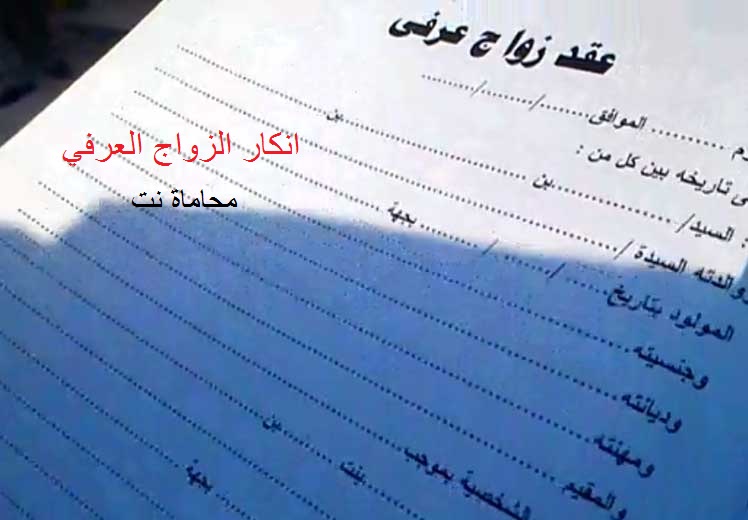 عقد زواج عرفى
الموافق ........../........../..........
تاريخه بين كل من :
السيد/ ..........بن ..........بن
والدته السيدة/
المولود بتاريخ ....../......../........ بجهة
وجنسيته
وديانته
ومهنته
والمقيم
الشخصية بموجب ..........بن
بنت
بجهة
انكار الزواج العرفي
محاماة نت